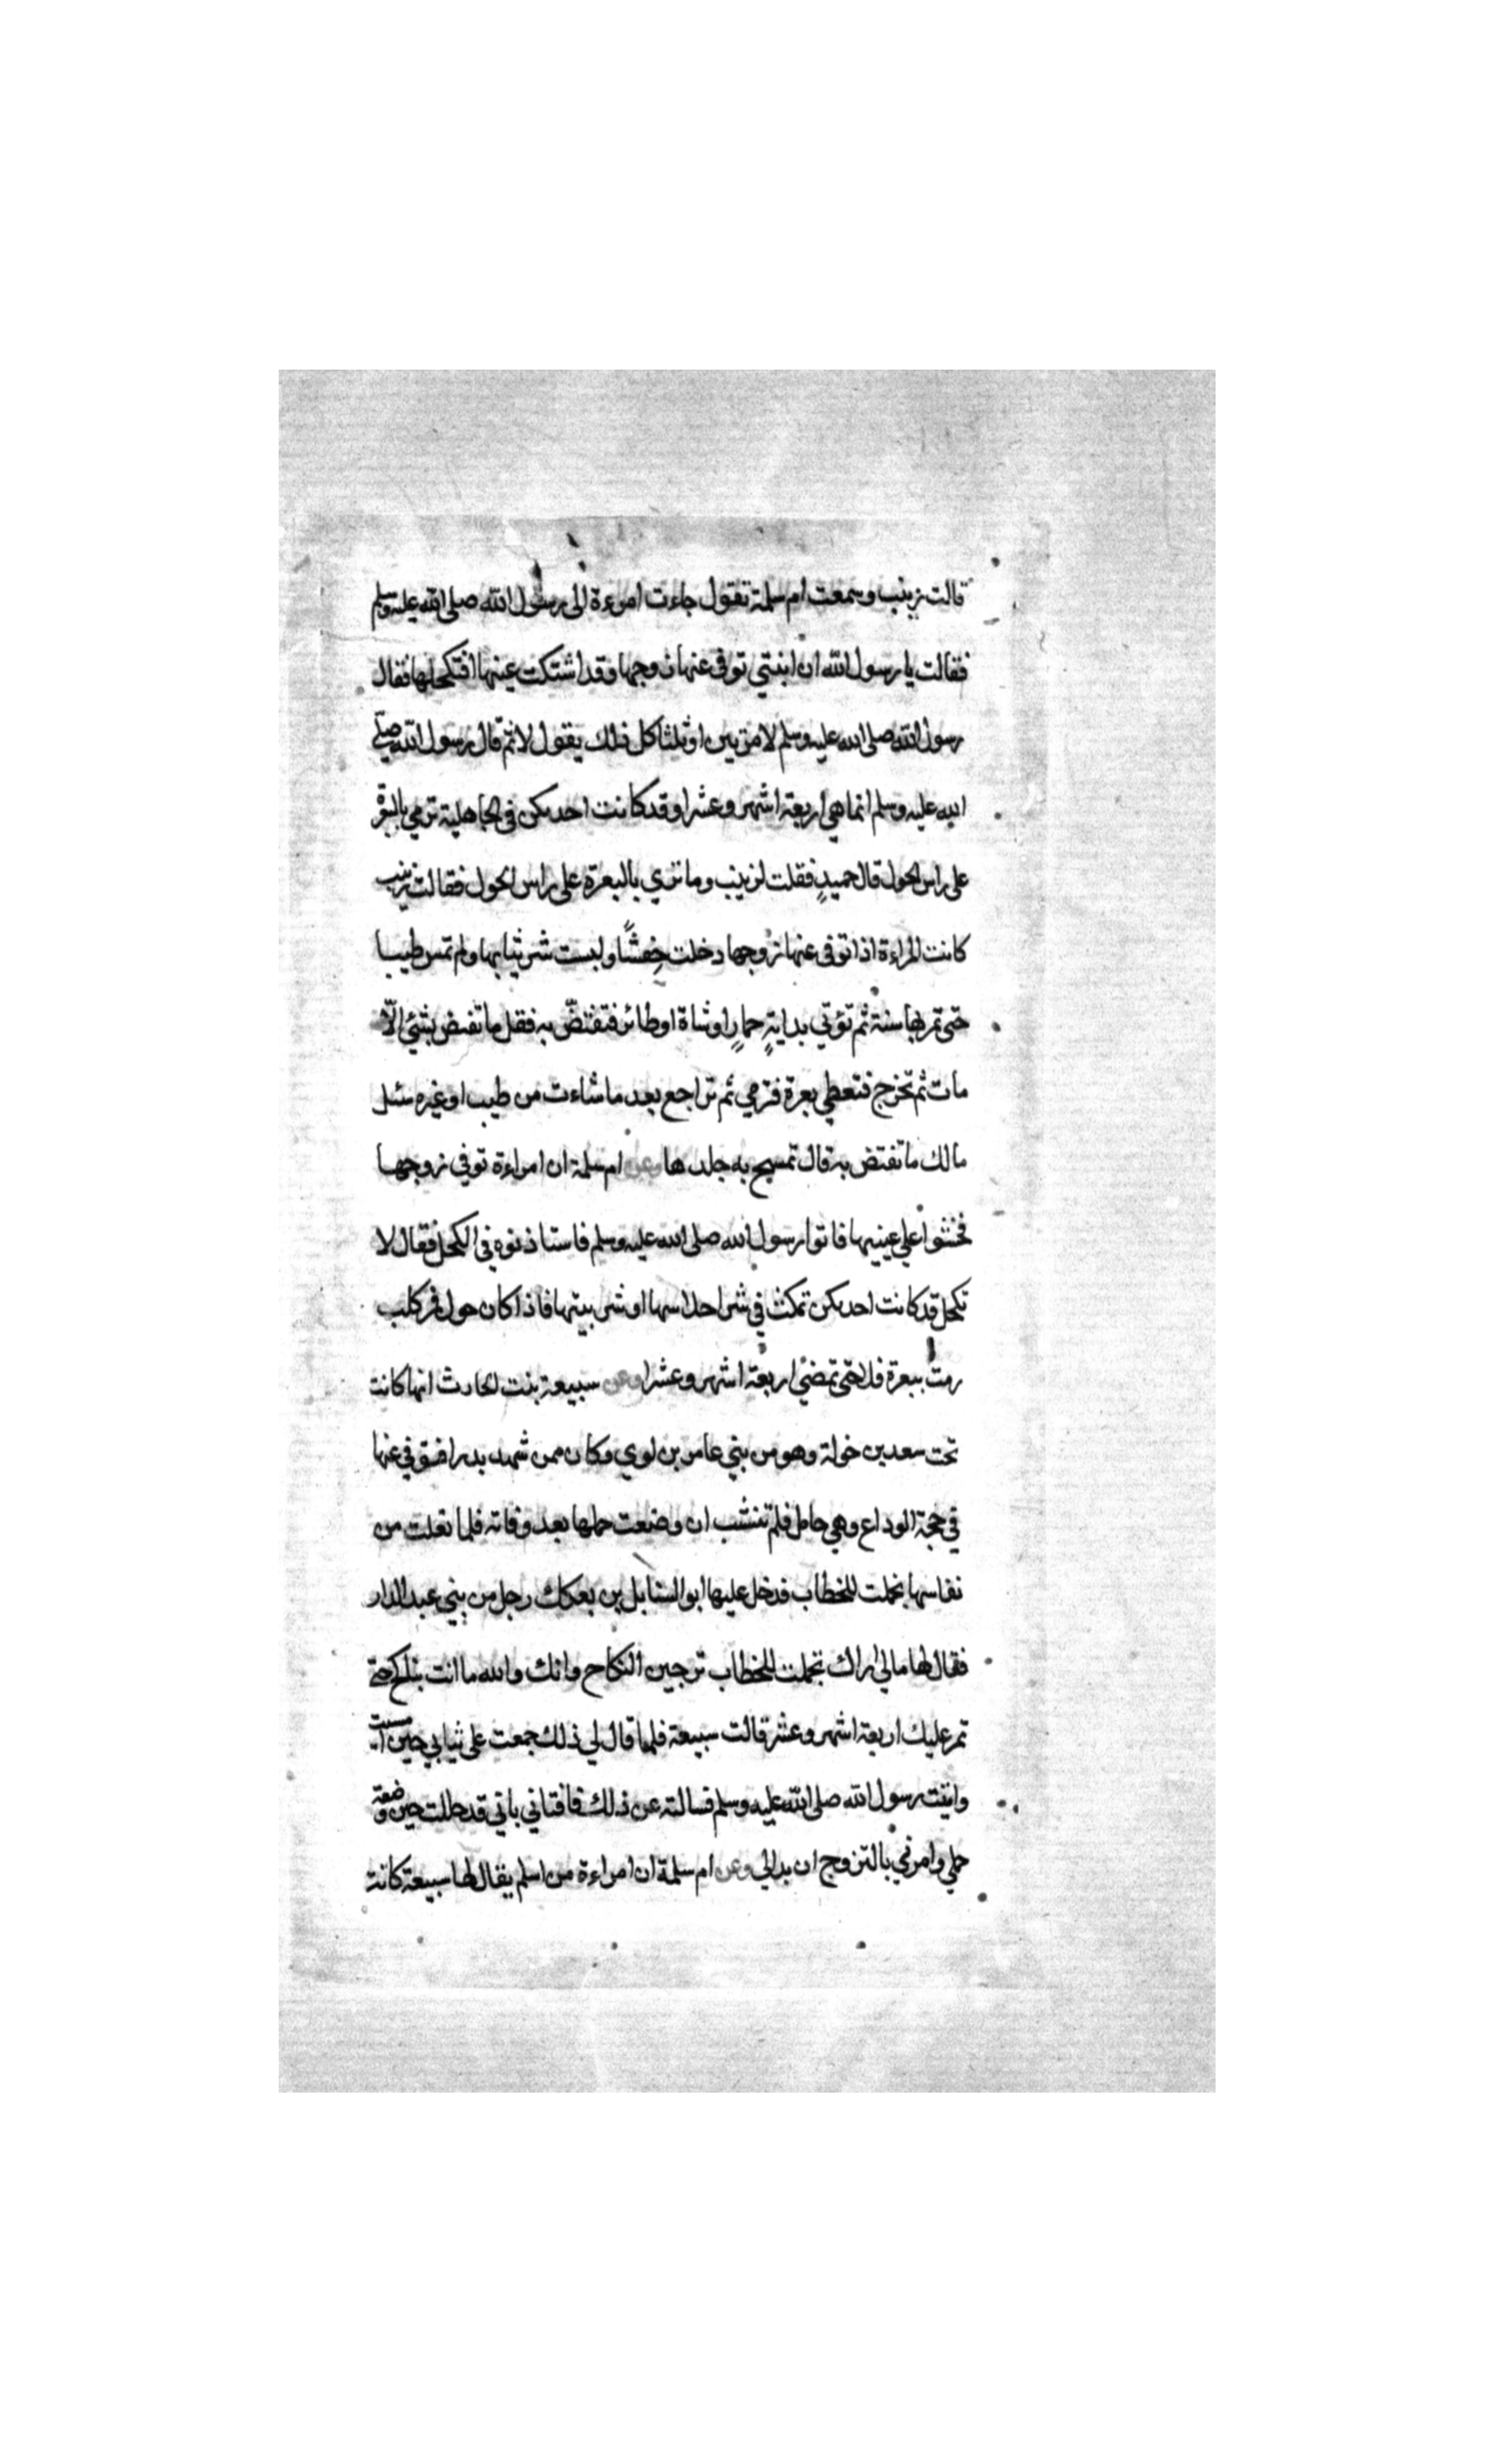 قالت زينب وسمعت ام سلمة تقول جاءت امرءة الى رسول الله صلى الله عليه وسلم
فقالت يا رسول الله ان ابنتي توفى عنها زوجها وقد اشتكت عينها افتكحلها فقال
رسول الله صلى الله عليه وسلم لا مرتين او ثلثا كل ذلك يقول لا ثم قال رسول الله صلى
الله عليه وسلم انما هي اربعة اشهر وعشرا وقد كانت احديكن في الجاهلية ترمي بالبعرة
على راس الحول قال حميدٍ فقلت لزينب وما ترمي بالبعرة على راس الحول فقالت زينب
كانت المراءة اذا توفى عنها زوجها دخلت حِفشًا ولبست شر ثيابها ولم تمس طيبا
حتى تمر بها سنة ثم تؤتي بدابةٍ حمارٍ او شاة او طائر فتفتضّ به فقل ما تفتض بشئ الّا
مات ثم تخرج فتعطي بعرة فترمي ثم تراجع بعد ما شاءت من طيب او غيره سئل
مالك ما تفتض به قال تمسح به جلدها وعن ام سلمة ان امراءة توفي زوجها
فخشوا علي عينيها فاتوا رسول الله صلى الله عليه وسلم فاستاذنوه في الكحل فقال لا
تكحل قد كانت احديكن تمكث في شر احلاسها او شر بيتها فاذا كان حول فمر كلب
رمت ببعرة فلا حتى تمضي اربعة اشهر وعشرا وعن سبيعة بنت الحارث انها كانت
تحت سعد بن خولة وهو من بني عامر بن لوي وكان ممن شهد بدرا فتوفي عنها
في حجة الوداع وهي حامل فلم تنشب ان وضعت حملها بعد وفاته فلما تعلت من
نفاسها تجملت للخطاب فدخل عليها ابو السنابل بن بعكك رجل من بني عبد الدار
فقال لها مالي اراك تجملت للخطاب ترجين النكاح وانك والله ما انت بناكح حتى
تمر عليك اربعة اشهر وعشر قالت سبيعة فلما قال لي ذلك جمعت على ثيابي حين امسيت
واتيت رسول الله صلى الله عليه وسلم فسالته عن ذلك فافتاني باني قد حللت حين وضعت
حملي وامرني بالتزوج ان بدا لي وعن ام سلمة ان امراءة من اسلم يقال لها سبيعة كانت